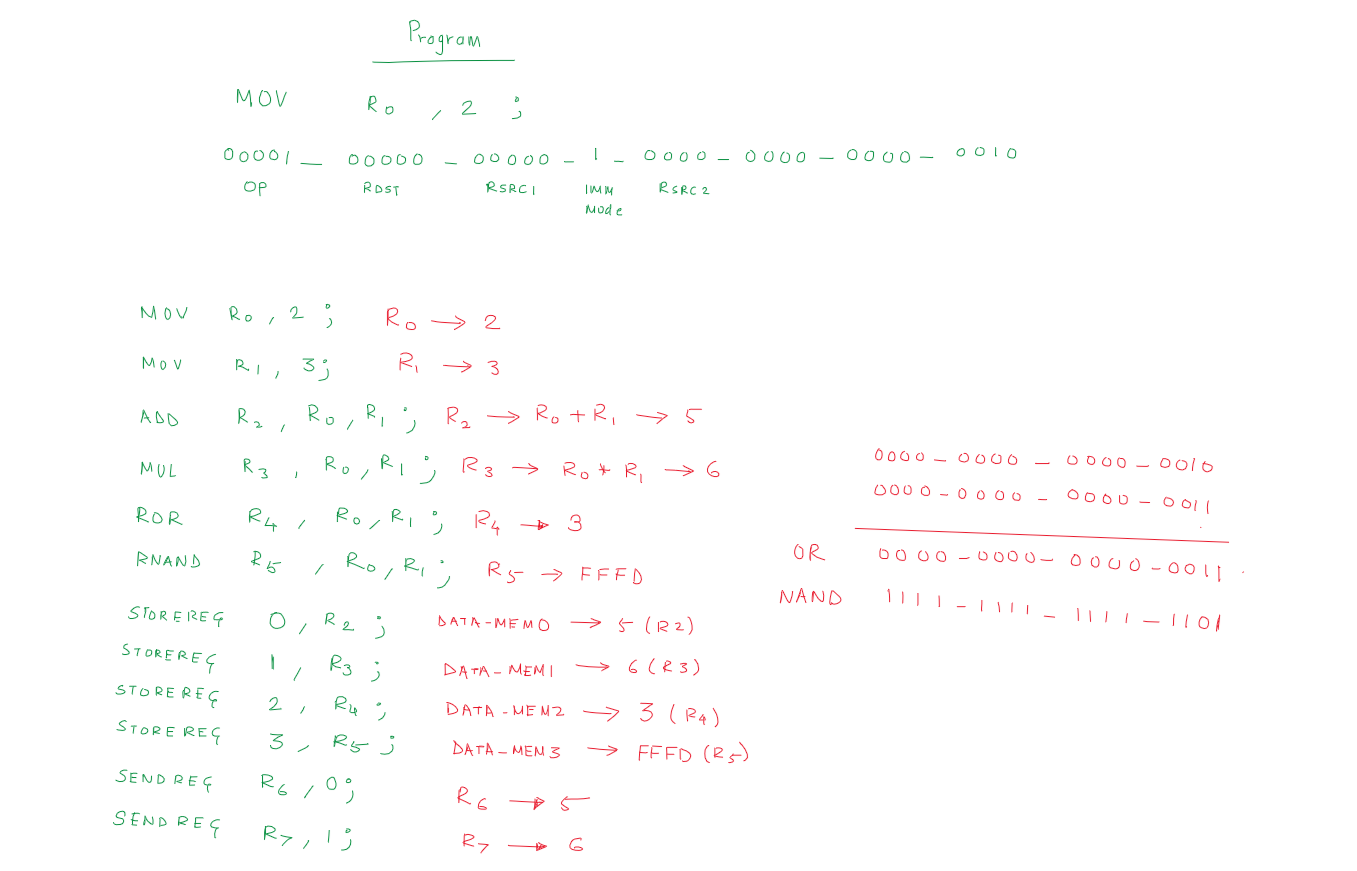 Program
MOV R0 , 2 ;
00001 - 00000 - 00000 - 1 - 0000 - 0000 - 0000 - 0010
OP RDST RSRC1 IMM Mode RSRC2
MOV R0 , 2 ; R0 → 2
MOV R1 , 3 ; R1 → 3
ADD R2 , R0 , R1 ; R2 → R0 + R1 → 5
MUL R3 , R0 , R1 ; R3 → R0 * R1 → 6
ROR R4 , R0 , R1 ; R4 → 3
RNAND R5 , R0 , R1 ; R5 → FFFD
STOREREG 0 , R2 ; DATA-MEM0 → 5 (R2)
STOREREG 1 , R3 ; DATA-MEM1 → 6 (R3)
STOREREG 2 , R4 ; DATA-MEM2 → 3 (R4)
STOREREG 3 , R5 ; DATA-MEM3 → FFFD (R5)
SENDREG R6 , 0 ; R6 → 5
SENDREG R7 , 1 ; R7 → 6
0000 - 0000 - 0000 - 0010
0000 - 0000 - 0000 - 0011
OR 0000 - 0000 - 0000 - 0011
NAND 1111 - 1111 - 1111 - 1101